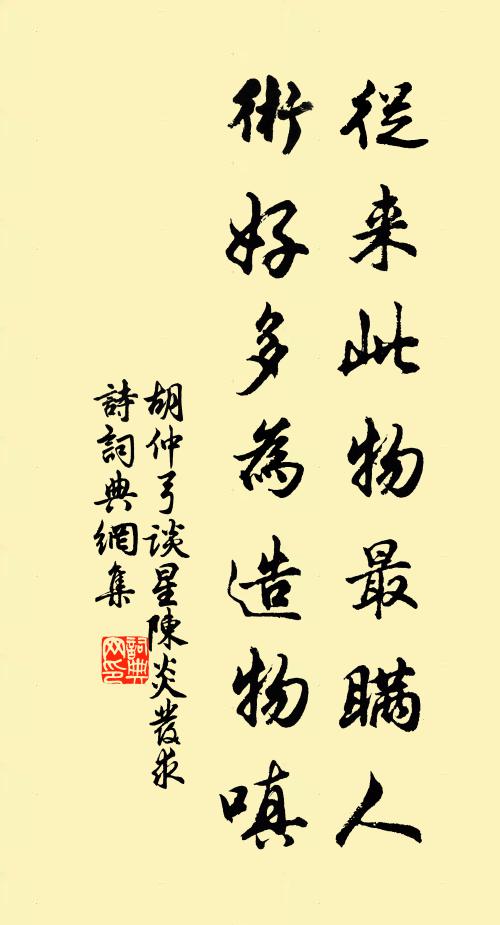 從来此物最瞞人
術好多為造物嗔
胡仲弓谈星陳炎發求
詩詞典網集
詞典
网印